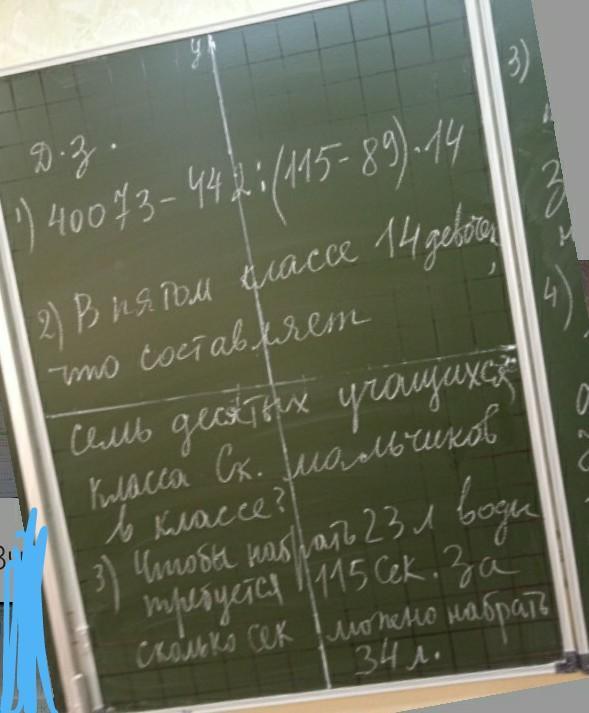 у
Д.З.
1) 40073-442:(115-89)·14
2) В пятом классе 14 девочек,
что составляет
семь десятых учащихся
класса Ск. мальчиков
в классе?
3) Чтобы набрать 23 л воды
требуется 115 сек. За
сколько сек можно набрать
34 л.
3)
4)